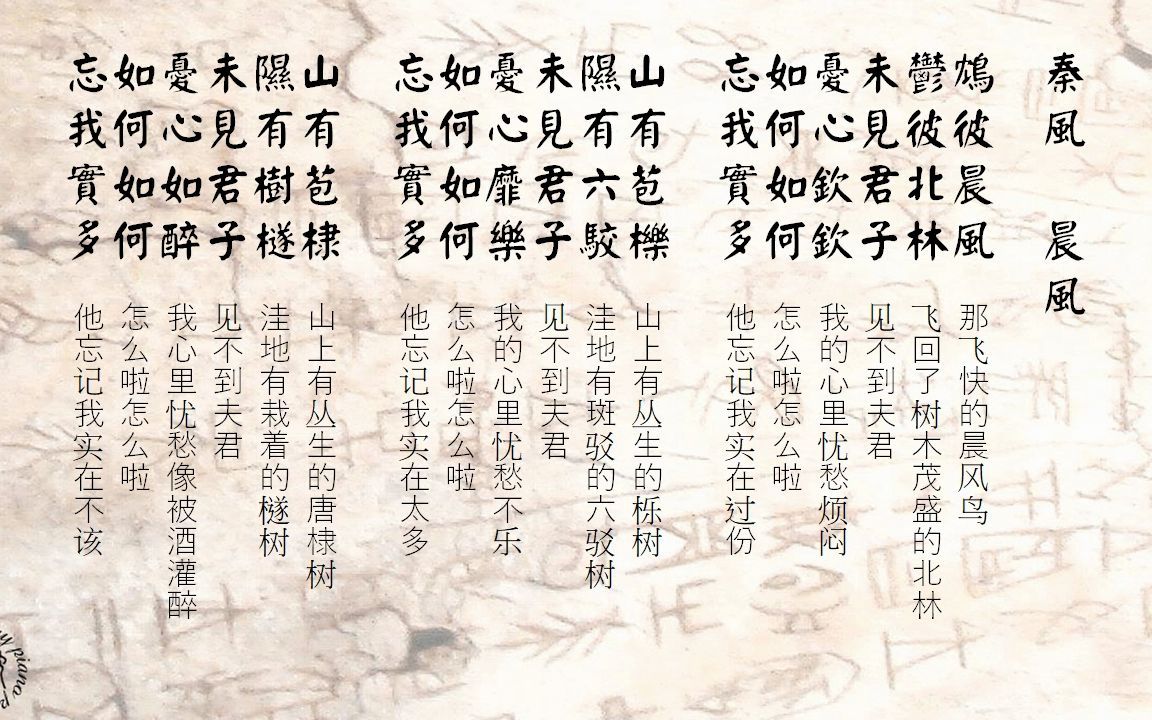 秦風 晨風
鴥彼晨風
鬱彼北林
未見君子
憂心欽欽
如何如何
忘我實多
那飞快的晨风鸟
飞回了树木茂盛的北林
见不到夫君
我的心里忧愁烦闷
怎么啦怎么啦
他忘记我实在过份
山有苞櫟
隰有六駮
未見君子
憂心靡樂
如何如何
忘我實多
山上有丛生的栎树
洼地有斑驳的六驳树
见不到夫君
我的心里忧愁不乐
怎么啦怎么啦
他忘记我实在太多
山有苞棣
隰有樹檖
未見君子
憂心如醉
如何如何
忘我實多
山上有丛生的唐棣树
洼地有栽着的檖树
见不到夫君
我心里忧愁像被酒灌醉
怎么啦怎么啦
他忘记我实在不该
piano